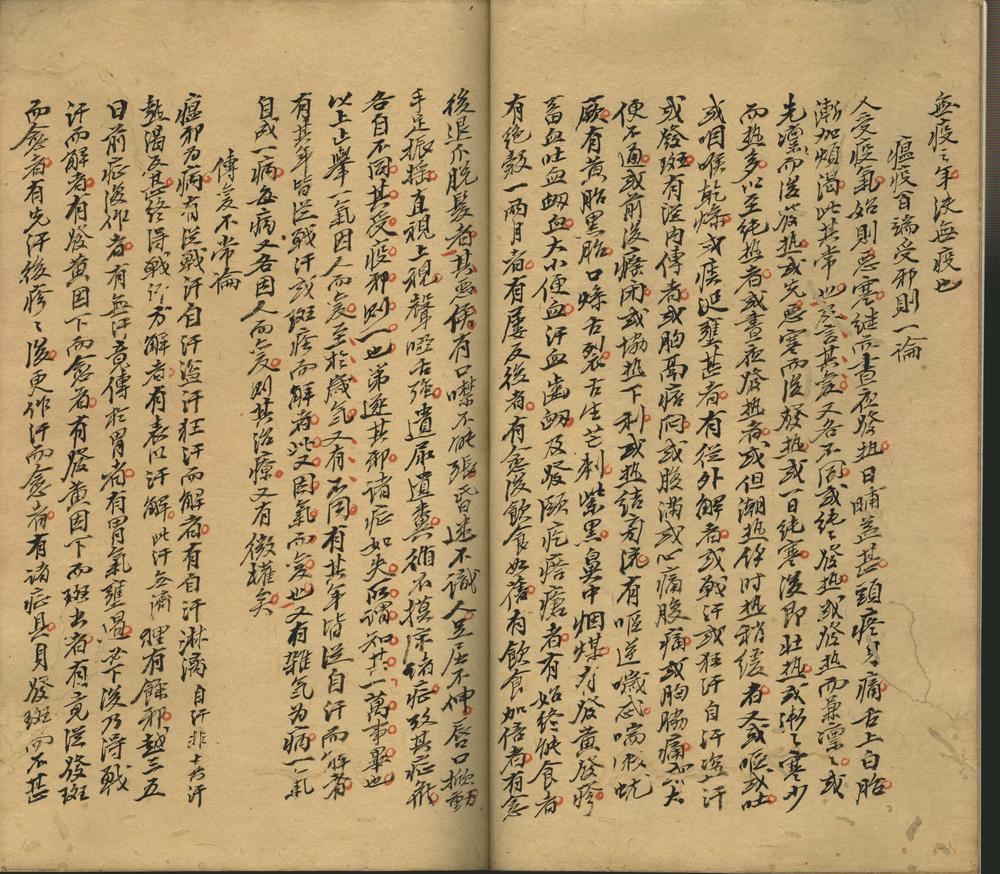 無疫之年決無疫也
瘟疫百端受邪則一論
人受疫氣始則惡寒繼而晝夜發热日晡益甚頭疼身痛舌上白胎
漸加煩渴此其常也及言其變又各不同或純純發热或發热而兼凜凜或
先凜而後發热或先惡寒而後發热或一日純寒後即壯热或漸漸寒少
而热多以至純热者或晝夜發热者或但潮热餘时热稍緩者又或嘔或吐
或咽喉乾燥或痰涎壅甚者有從外解者或戰汗或狂汗自汗盜汗
或發斑有從内傳者或胸鬲痞悶或腹满或心痛腹痛或胸脇痛或大
便不通或前後癃閉或協热下利或热結旁流有嘔逆噦惡喘嗽蚘
厥有黃胎黑胎口燥舌裂舌生芒刺紫黑鼻中烟煤有發黃發疹
畜血吐血衂血大小便血汗血齒衂及發頤疙瘩瘡者有始終能食者
有绝穀一兩月者有屡反後者有愈後飲食如舊有飲食加倍者有愈
後退爪脱髮者甚惡候有口噤不能張昏迷不識人足屈不伸唇口𣊬動
手足振摇直視上視聲啞舌強遺尿遺糞循衣摸床諸症攷其症形
各自不同其受疫邪則一也第逐其邪諸症如失所謂知其一萬事畢也
以上止舉一氣因人而變至於歲氣又有不同有其年皆從自汗而解者
有其年皆從戰汗或斑疹而解者此又因氣而變也又有雜氣为病一氣
自成一病每病又各因人而变则其治療又有微權矣
傳变不常論
瘟邪为病有從戰汗自汗盜汗狂汗而解者有自汗淋漓自汗非十分汗
熱渴反甚終得戰汗方解者有表以汗解此汗無濟裡有餘邪越三五
日前症復作者有無汗竟傳於胃者有胃氣壅遏必下後乃得戰
汗而解者有發黃因下而愈者有發黃因下而斑出者有竟從發斑
而愈者有先汗後疹疹後更作汗而愈者有諸症具具發斑而不甚